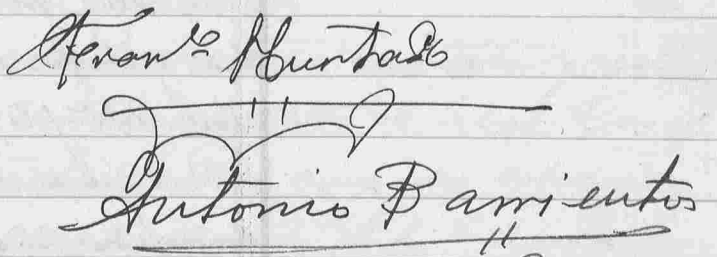 Hurtado
Antonio Barrientos